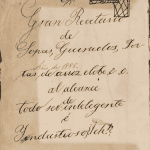 Gran Recetario
de
Sopas, Guisados, Tor-
tas, de arros, dobe e. e.
al alcance
de
todo ser inteligente
é
Yndustrioso